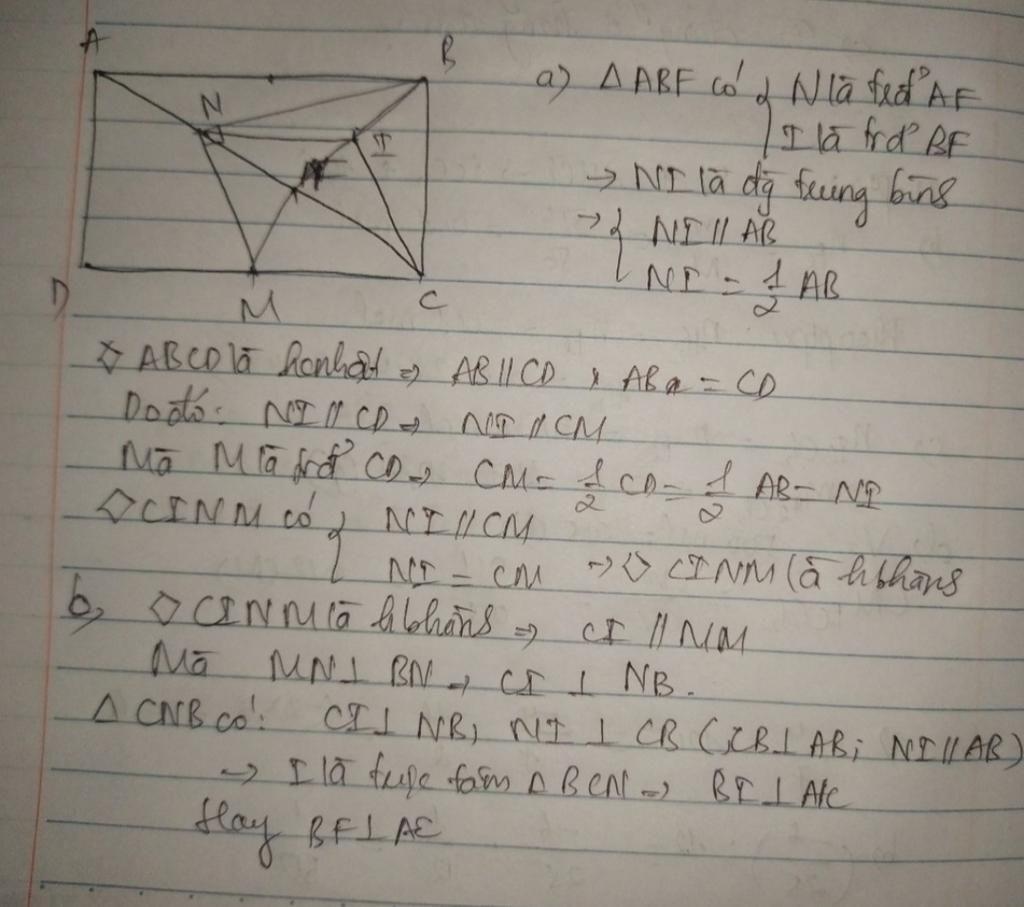 A
B
N
I
F
D
M
C
a) △ABF có { N là trđ° AF
I là trđ° BF
→ NI là đg trung bình
→ { NI // AB
NI = 1/2 AB
◇ ABCD là hcnhật ⇒ AB // CD, AB = CD
Do đó: NI // CD ⇒ NI // CM
Mà M là trđ° CD → CM = 1/2 CD = 1/2 AB = NI
◇ CINM có { NI // CM
NI = CM → ◇ CINM là hbhàng
b, ◇ CINM là hbhàng ⇒ CI // NM
Mà MN ⊥ BN → CI ⊥ NB.
△ CNB có: CI ⊥ NB, NI ⊥ CB (CB ⊥ AB; NI // AB)
→ I là trực tâm △ BCN ⇒ BI ⊥ NC
Hay BF ⊥ AC